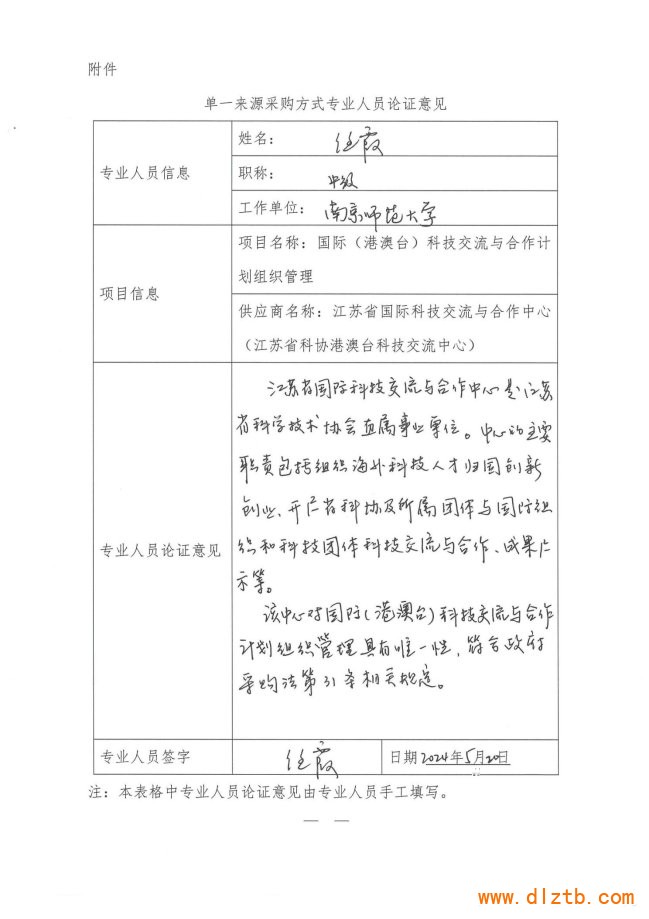 附件
单一来源采购方式专业人员论证意见
专业人员信息
姓名：任霞
职称：中级
工作单位：南京师范大学
项目信息
项目名称：国际（港澳台）科技交流与合作计
划组织管理
供应商名称：江苏省国际科技交流与合作中心
（江苏省科协港澳台科技交流中心）
专业人员论证意见
江苏省国际科技交流与合作中心是江苏
省科学技术协会直属事业单位。中心的主要
职责包括组织海外科技人才归国创新
创业、开展省科协及所属团体与国际组
织和科技团体科技交流与合作、成果展
示等。
该中心对国际（港澳台）科技交流与合作
计划组织管理具有唯一性，符合政府
采购法第31条相关规定。
专业人员签字
任霞
日期2024年5月20日
注：本表格中专业人员论证意见由专业人员手工填写。
— —
www.dlztb.com